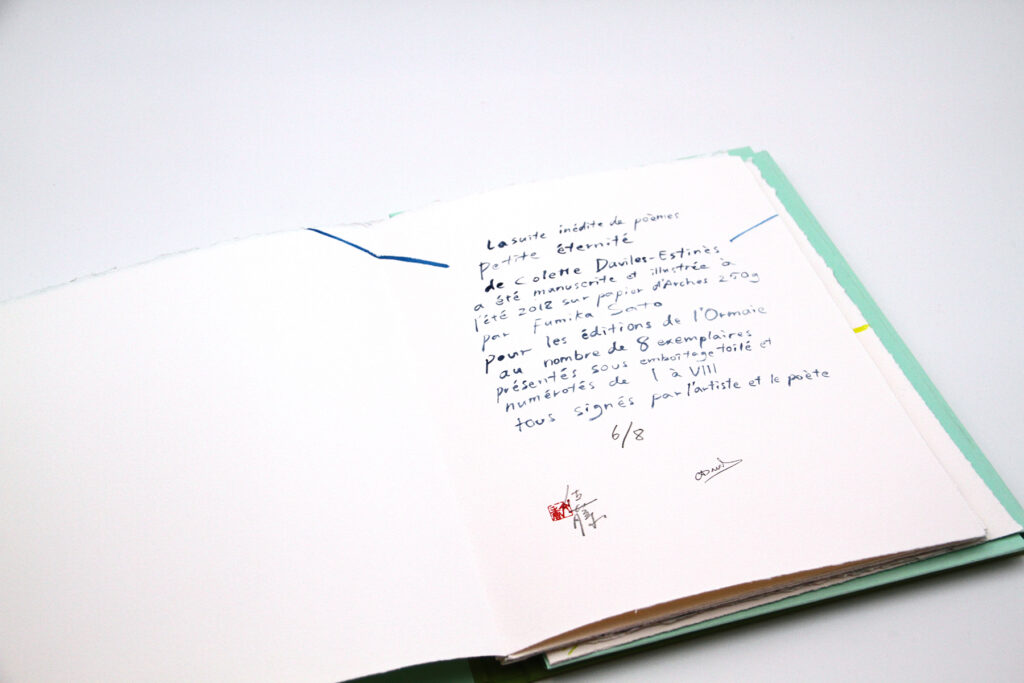 La suite inédite de poèmes
Petite éternité
de Colette Daviles-Estinès
a été manuscrite et illustrée à
l'été 2018 sur papier d'Arches 250g
par Fumika Sato
pour les éditions de l'Ormaie
au nombre de 8 exemplaires
présentés sous emboîtage toilé et
numérotés de I à VIII
tous signés par l'artiste et le poète
6/8
佐藤